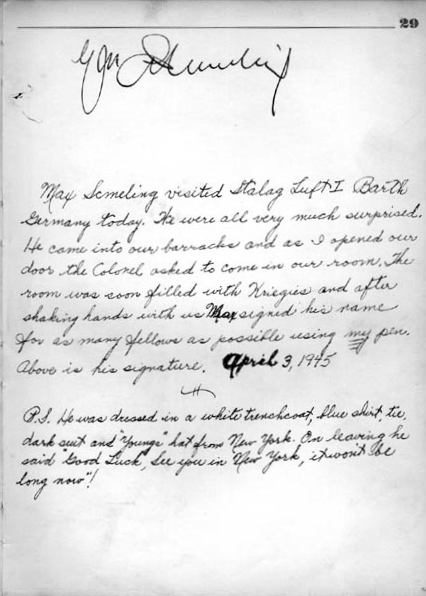 29
Max Scmeling visited Stalag Luft I Barth
Germany today. We were all very much surprised.
He came into our barracks and as I opened our
door the Colonel asked to come in our room. The
room was soon filled with Kriegies and after
shaking hands with us Max signed his name
for as many fellows as possible using my pen.
Above is his signature. April 3, 1945
P.S. He was dressed in a white trenchcoat, blue shirt, tie,
dark suit and "Youngs" hat from New York. On leaving he
said "Good Luck, See you in New York, it won't be
long now"!